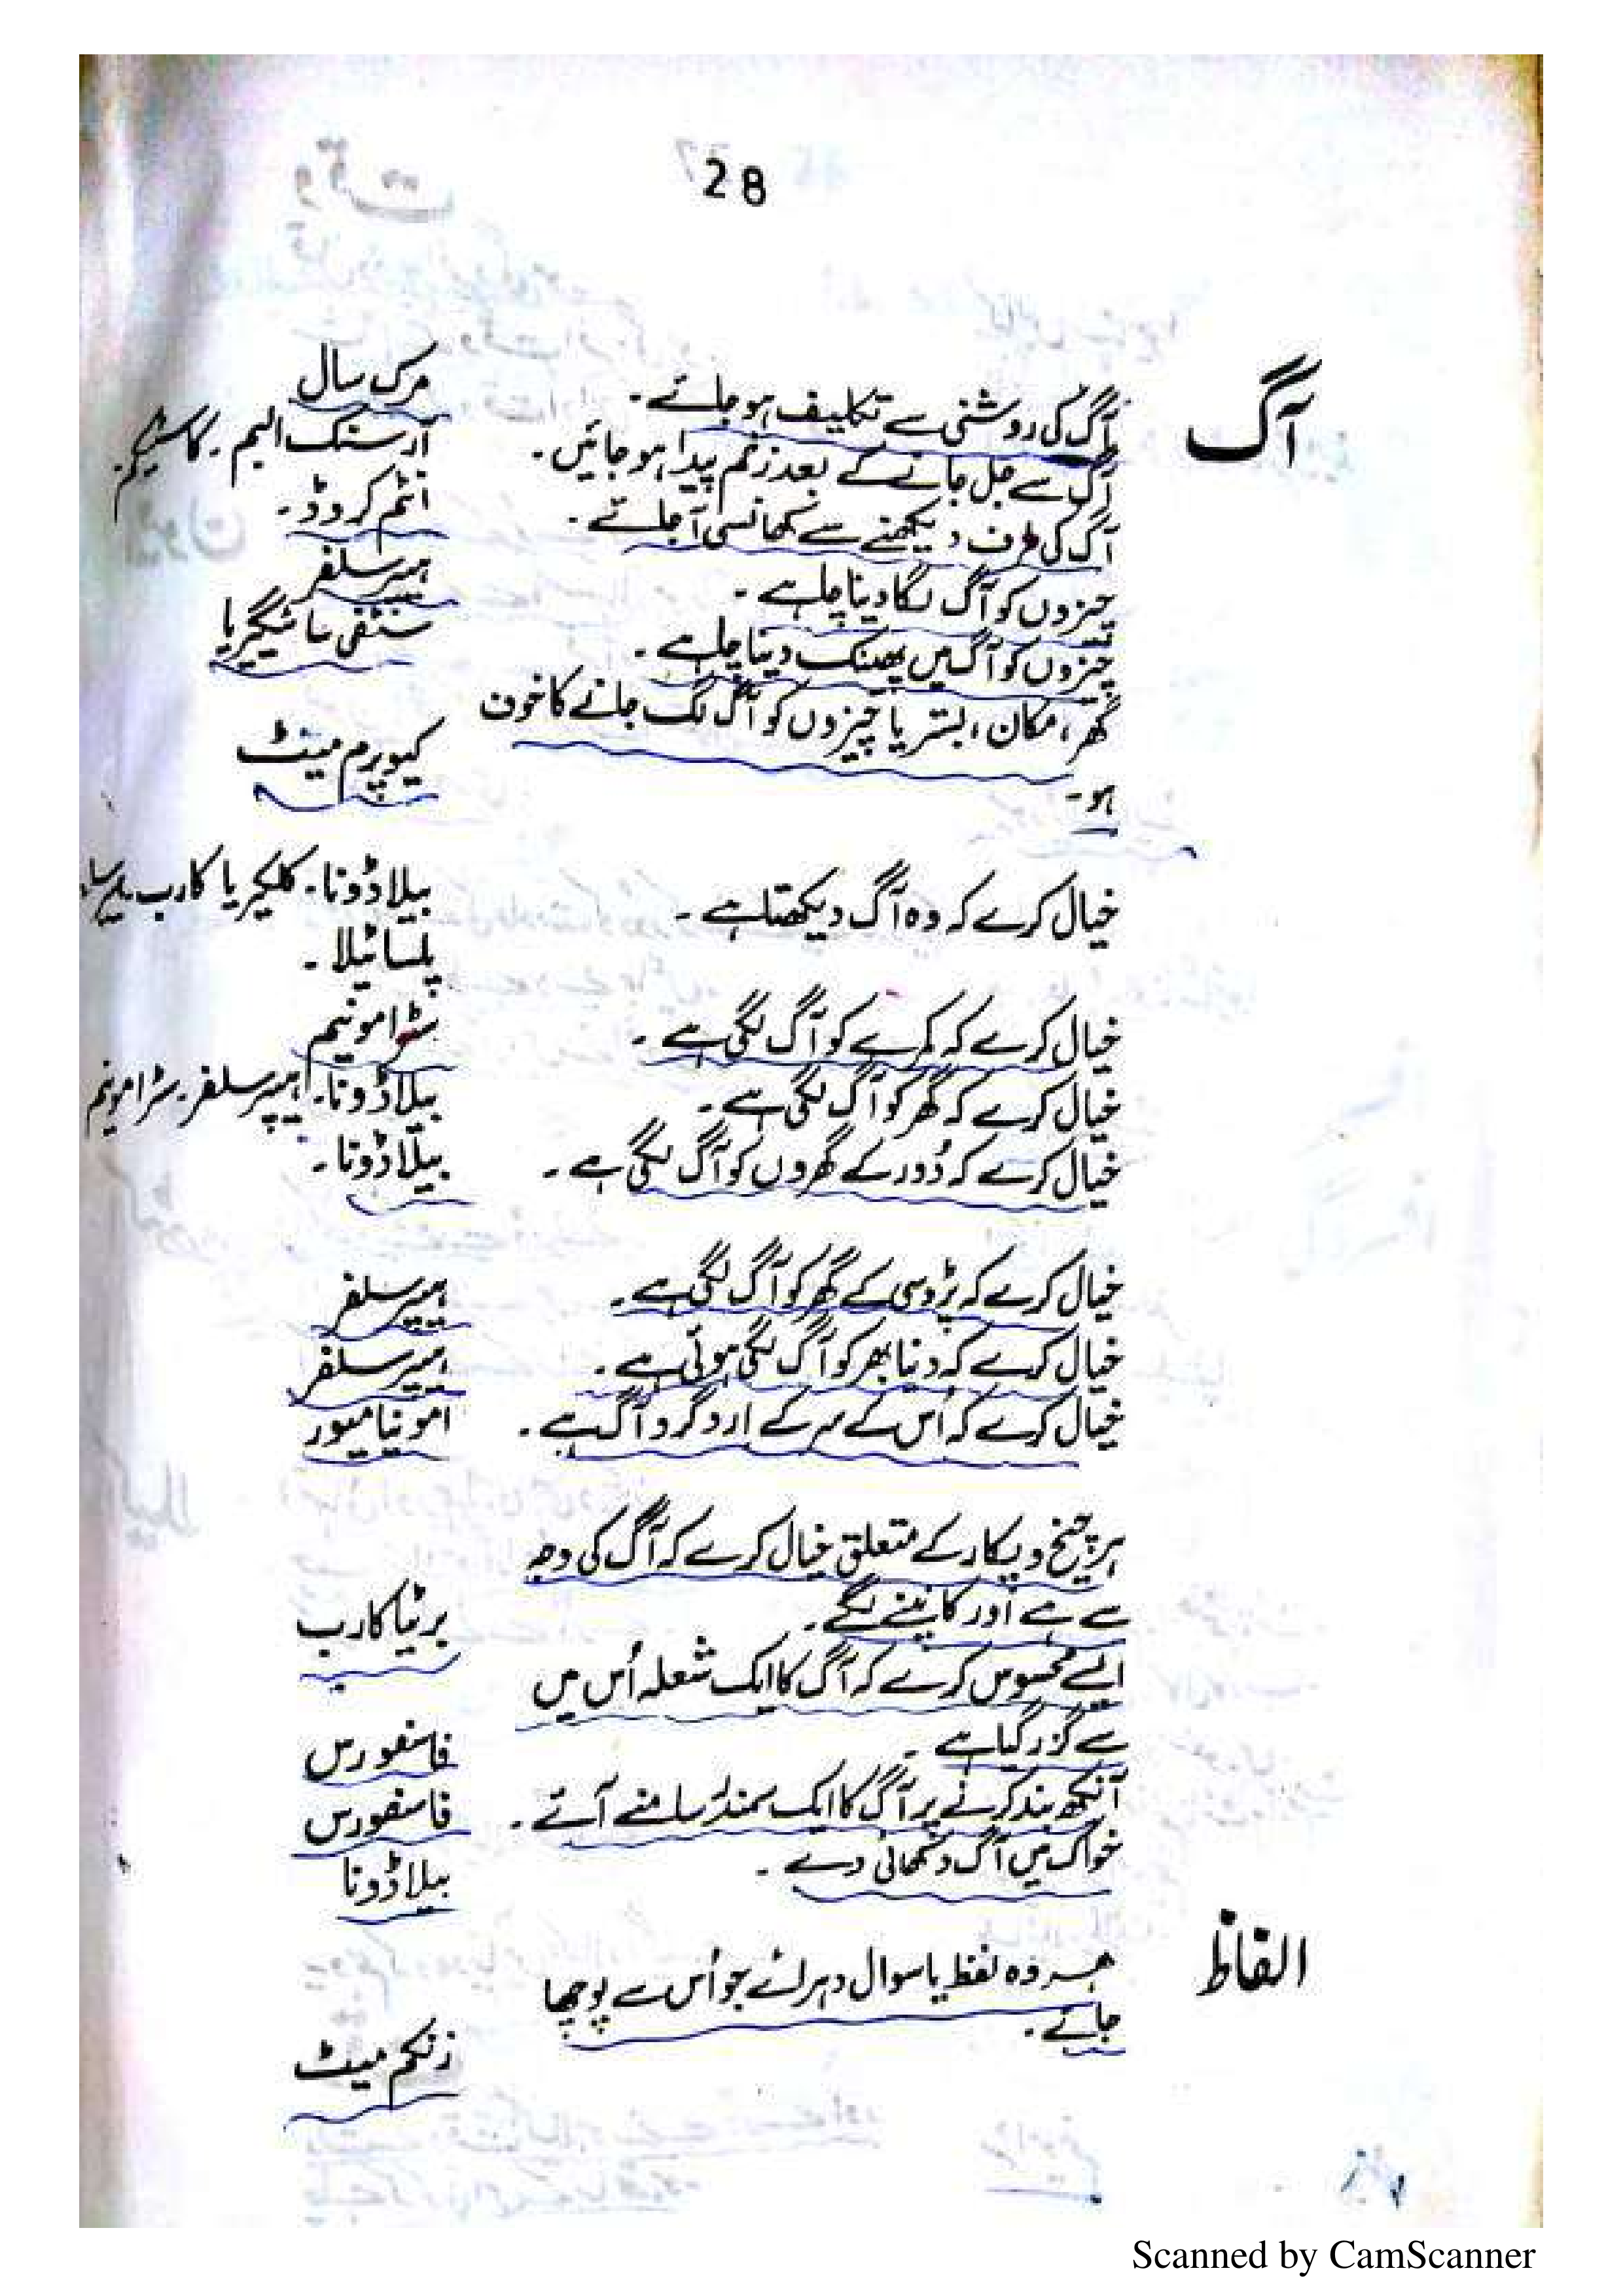 28
آگ
آگ کی روشنی سے تکلیف ہو جائے۔ مرک سال
آگ سے جل جانے کے بعد زخم پیدا ہو جائیں۔ آرسنک البم۔ کاسٹیکم۔
آگ کی طرف دیکھنے سے کھانسی آ جائے۔ انٹم کروڈ۔
چیزوں کو آگ لگا دینا چاہے۔ ہیپر سلفر
چیزوں کو آگ میں پھینک دینا چاہے۔ سٹفی سائیگریا
گھر، مکان، بستر یا چیزوں کو آگ لگ جانے کا خوف
ہو۔ کیوپرم میٹ
خیال کرے کہ وہ آگ دیکھتا ہے۔ بیلاڈونا۔ کلکیریا کارب۔
پلساٹیلا۔
خیال کرے کہ کمرے کو آگ لگی ہے۔ سٹرامونیم
خیال کرے کہ گھر کو آگ لگی ہے۔ بیلاڈونا۔ ہیپر سلفر۔ سٹرامونیم
خیال کرے کہ دُور کے گھروں کو آگ لگی ہے۔ بیلاڈونا۔
خیال کرے کہ پڑوسی کے گھر کو آگ لگی ہے۔ ہیپر سلفر
خیال کرے کہ دنیا بھر کو آگ لگی ہوئی ہے۔ ہیپر سلفر
خیال کرے کہ اُس کے سر کے ارد گرد آگ ہے۔ امونیا میور
ہر چیخ و پکار کے متعلق خیال کرے کہ آگ کی وجہ
سے ہے اور کانپنے لگے۔ برٹیا کارب
ایسے محسوس کرے کہ آگ کا ایک شعلہ اُس میں
سے گزر گیا ہے۔ فاسفورس
آنکھ بند کرنے پر آگ کا ایک سمندر سامنے آئے۔ فاسفورس
میں آگ دکھائی دے۔ بیلاڈونا
الفاظ
ہر وہ لفظ یا سوال دہرائے جو اُس سے پوچھا
جائے۔
زنکم میٹ
Scanned by CamScanner